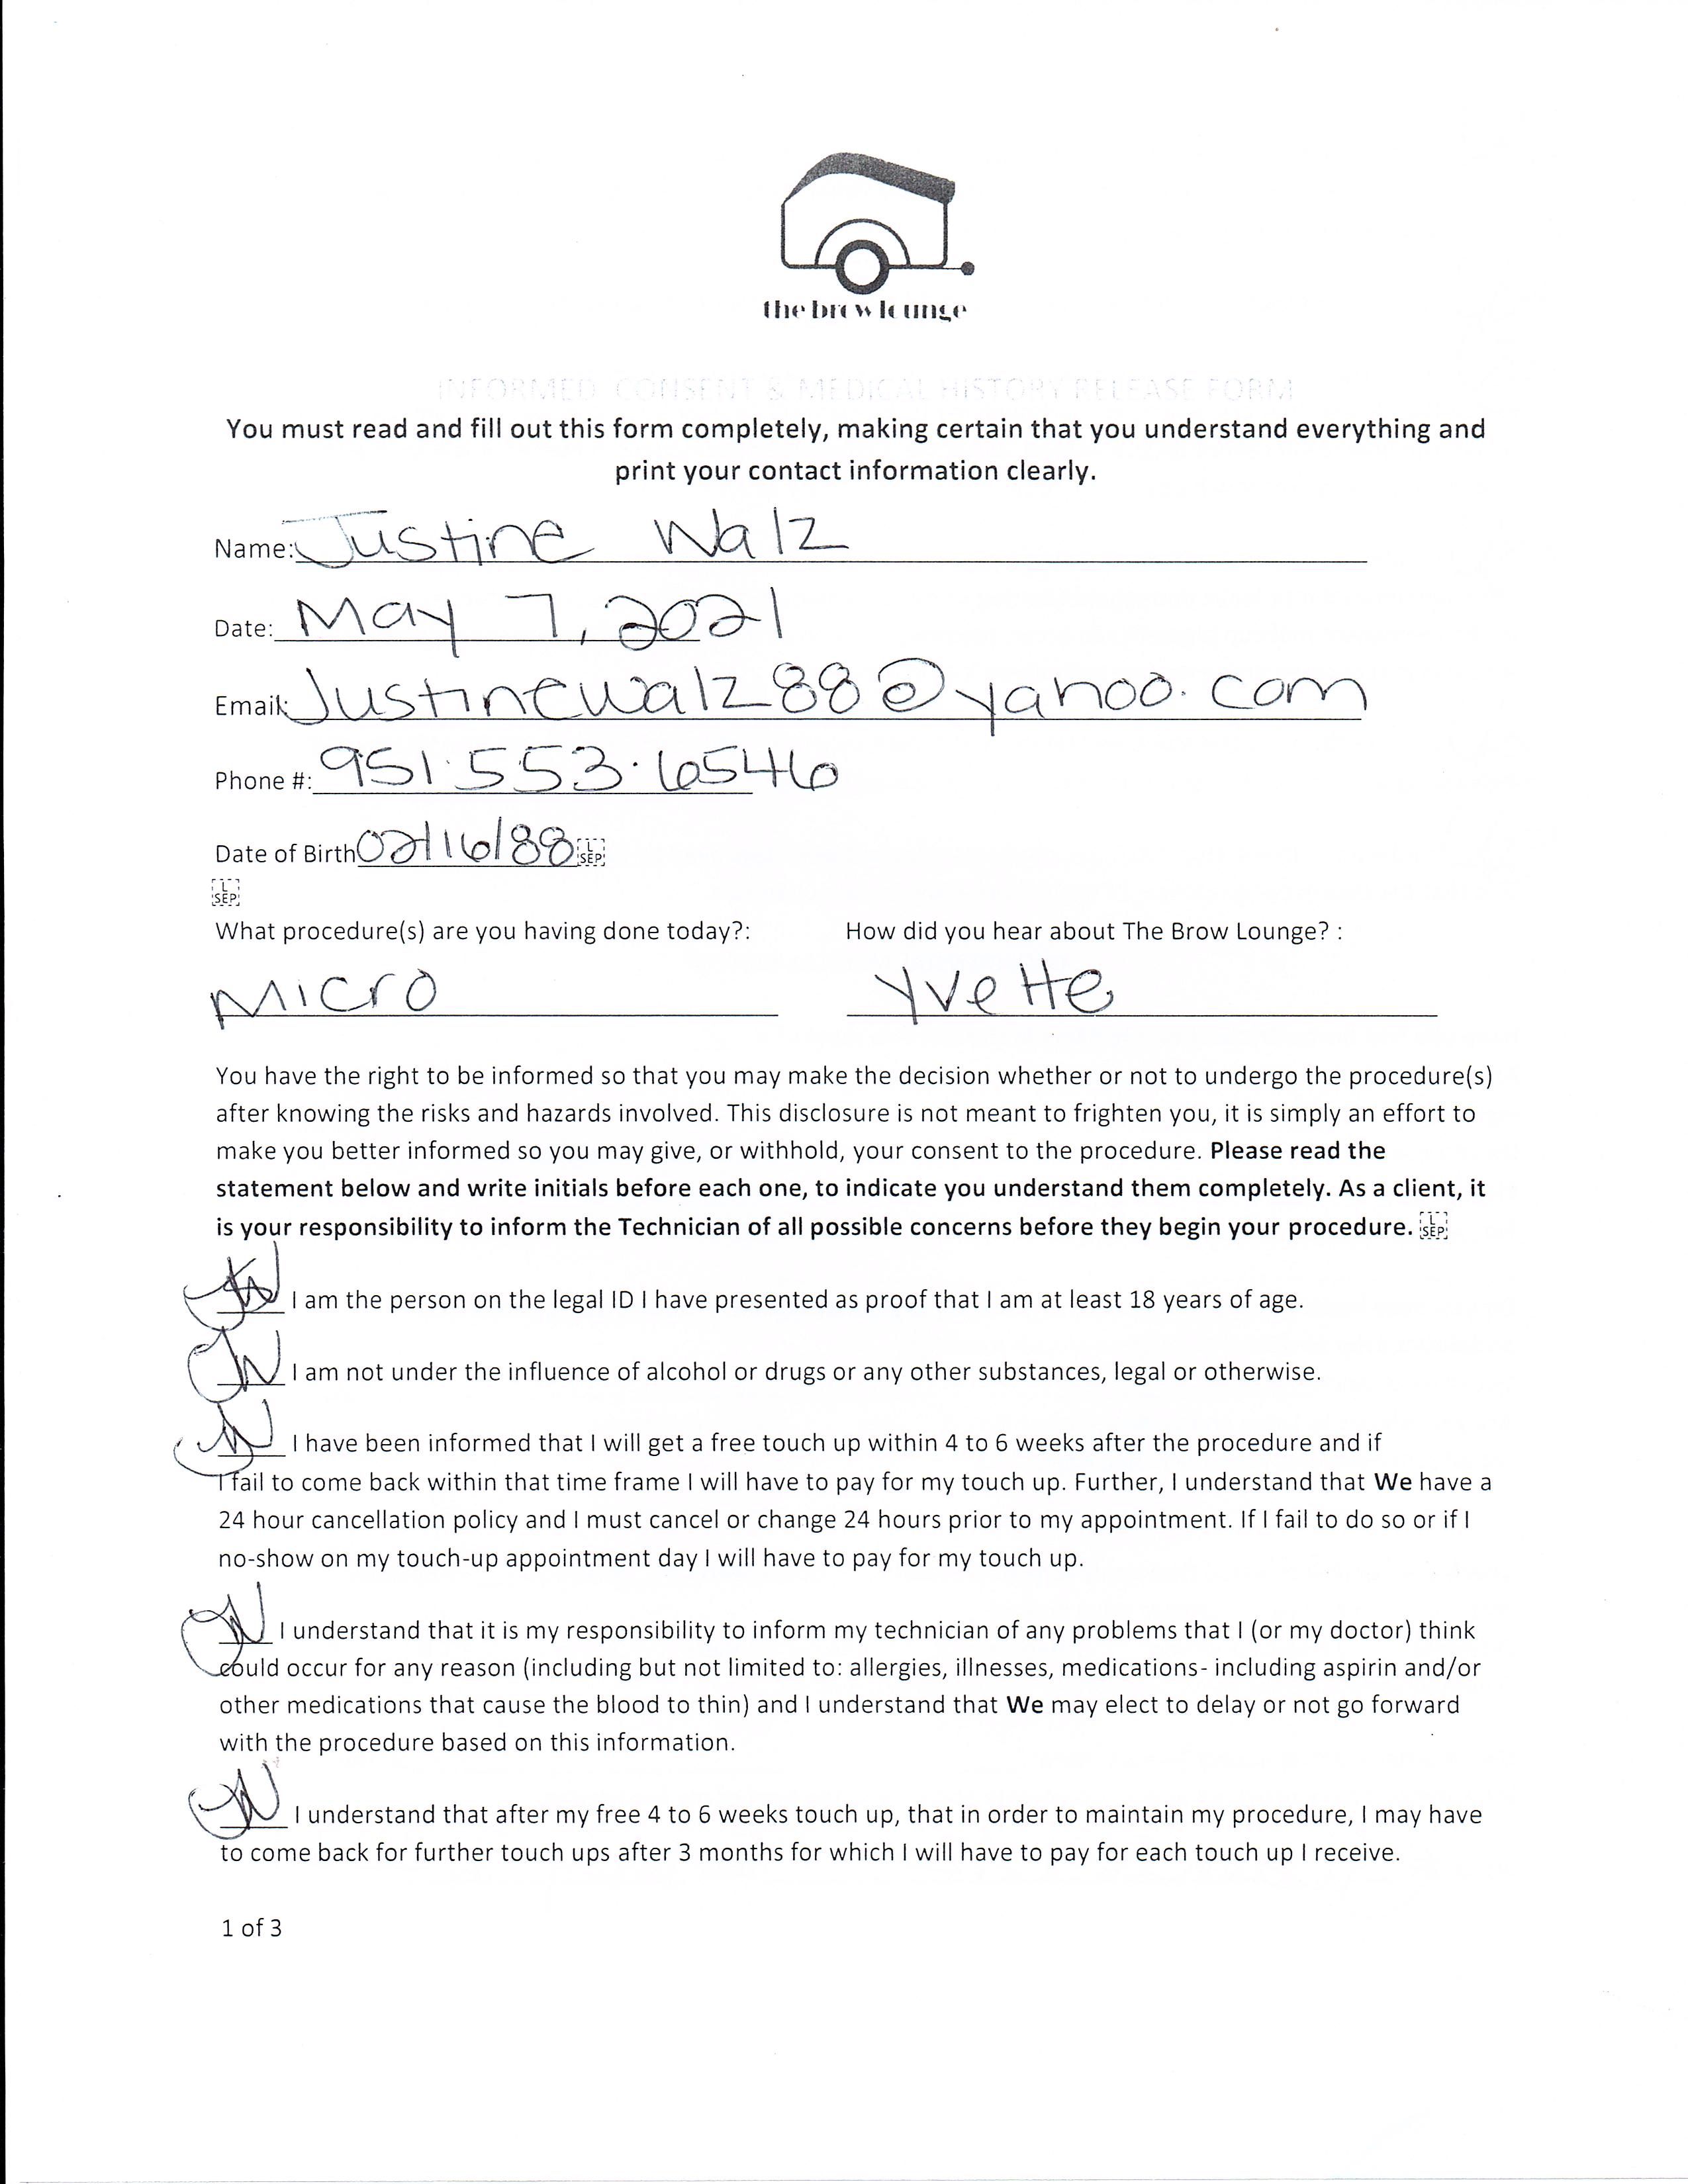 the brow lounge
INFORMED CONSENT & MEDICAL HISTORY RELEASE FORM
You must read and fill out this form completely, making certain that you understand everything and
print your contact information clearly.
Name: Justine Walz
Date: May 7, 2021
Email: Justinewalz88@yahoo.com
Phone #: 951.553.6546
Date of Birth 02/16/88 L SEP
L SEP
What procedure(s) are you having done today?: How did you hear about The Brow Lounge? :
Micro Yvette
You have the right to be informed so that you may make the decision whether or not to undergo the procedure(s)
after knowing the risks and hazards involved. This disclosure is not meant to frighten you, it is simply an effort to
make you better informed so you may give, or withhold, your consent to the procedure. Please read the
statement below and write initials before each one, to indicate you understand them completely. As a client, it
is your responsibility to inform the Technician of all possible concerns before they begin your procedure. L SEP
JW I am the person on the legal ID I have presented as proof that I am at least 18 years of age.
JW I am not under the influence of alcohol or drugs or any other substances, legal or otherwise.
JW I have been informed that I will get a free touch up within 4 to 6 weeks after the procedure and if
I fail to come back within that time frame I will have to pay for my touch up. Further, I understand that We have a
24 hour cancellation policy and I must cancel or change 24 hours prior to my appointment. If I fail to do so or if I
no-show on my touch-up appointment day I will have to pay for my touch up.
JW I understand that it is my responsibility to inform my technician of any problems that I (or my doctor) think
could occur for any reason (including but not limited to: allergies, illnesses, medications- including aspirin and/or
other medications that cause the blood to thin) and I understand that We may elect to delay or not go forward
with the procedure based on this information.
JW I understand that after my free 4 to 6 weeks touch up, that in order to maintain my procedure, I may have
to come back for further touch ups after 3 months for which I will have to pay for each touch up I receive.
1 of 3